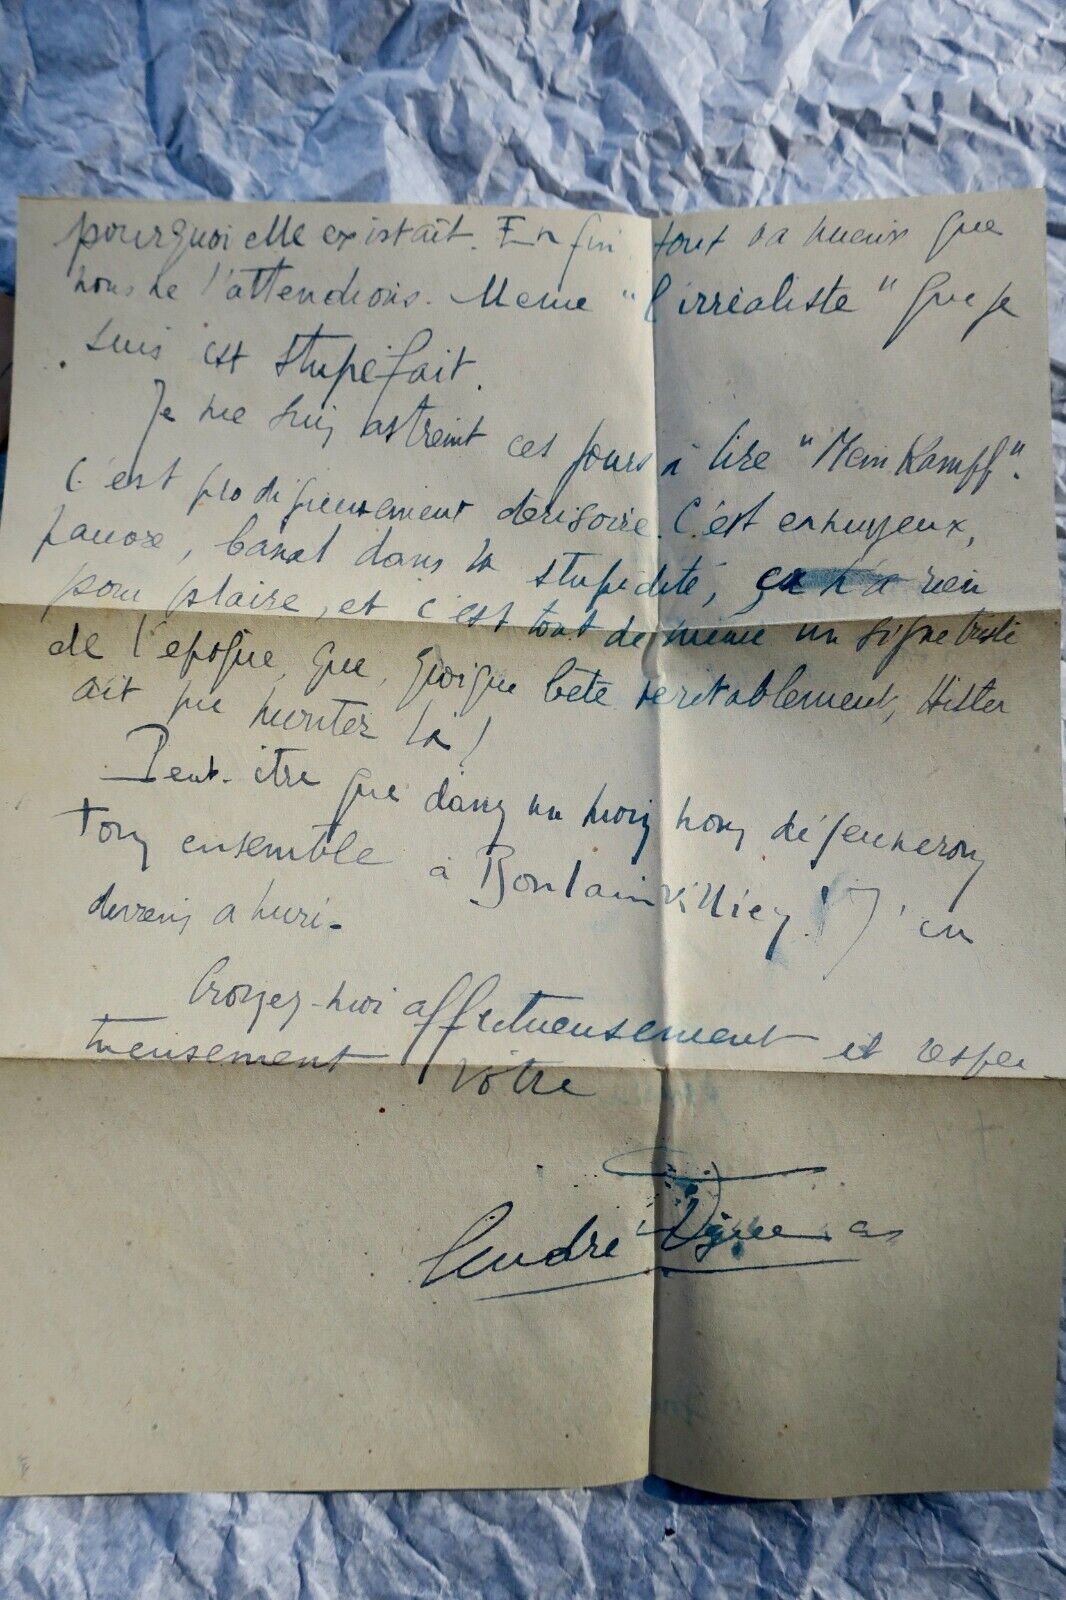 pourquoi elle existait. Enfin tout va mieux que
nous ne l'attendions. Meme "l'irréaliste" que je
suis est stupéfait.
Je me suis astreint ces jours à lire "Mein Kampf".
C'est prodigieusement dérisoire. C'est ennuyeux,
pauvre, banal dans la stupidité, ça n'a rien
pour plaire, et c'est tout de même un signe triste
de l'époque, que, quoique bête véritablement, Hitler
ait pu monter là!
Peut-être que dans un mois nous déjeunerons
tous ensemble à Boulainvilliers! J'en
deviens ahuri-
Croyez-moi affectueusement et respec
tueusement vôtre